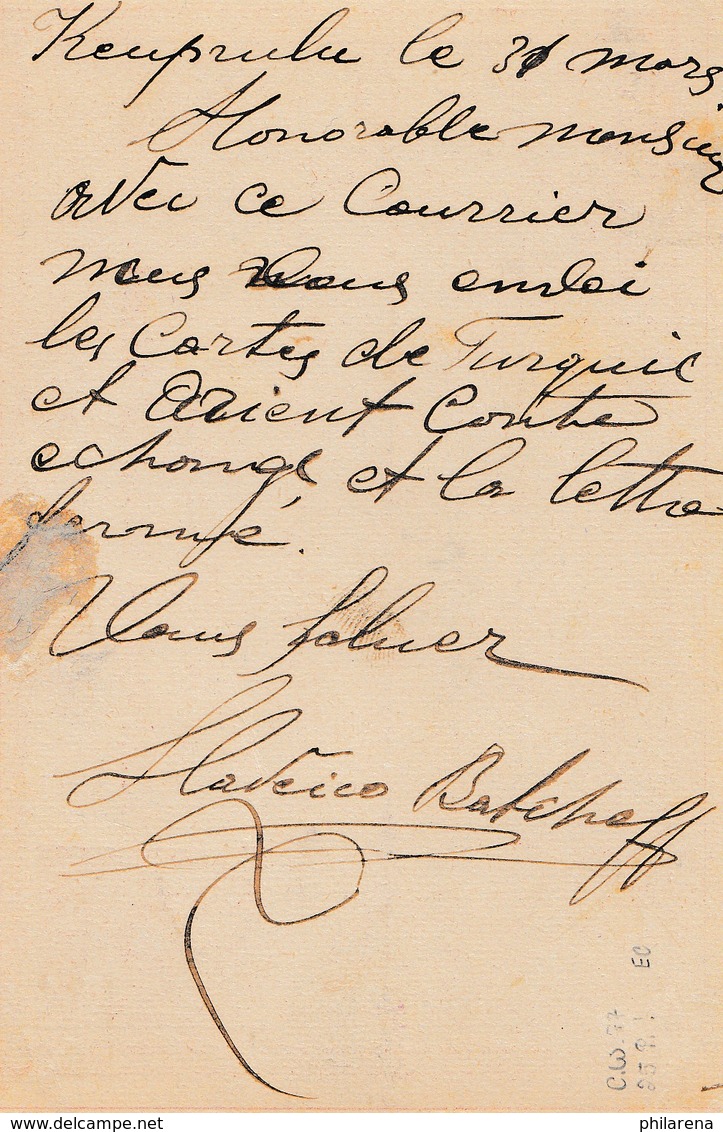 Keuprulu le 31 mars
Honorable monsieur
avec ce Courrier
nous vous envoi
les Cartes de Turquie
et Orient Contre
echange et la lettre
fermé.
Vous saluer
Slaveico Batchoff
EC
www.delcampe.net
philarena